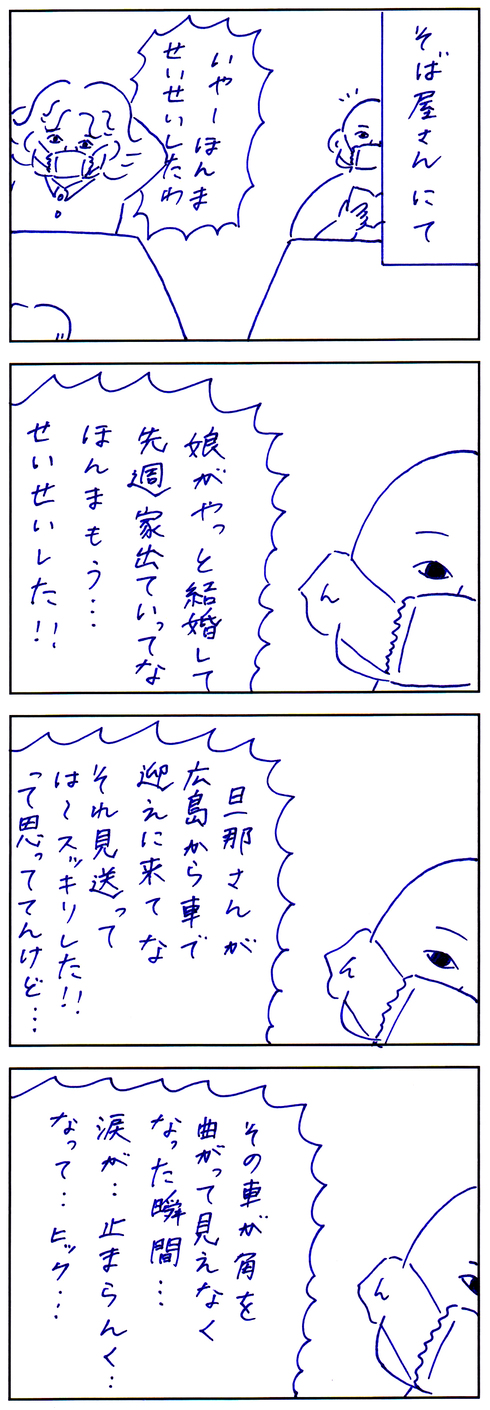 そば屋さんにて
いやーほんま
せいせいしたわ
娘がやっと結婚して
先週家出ていってな
ほんまもう…
せいせいした!!
旦那さんが
広島から車で
迎えに来てな
それ見送って
は～スッキリした!!
って思っててんけど…
その車が角を
曲がって見えなく
なった瞬間…
涙が‥止まらんく…
なって‥ヒック…